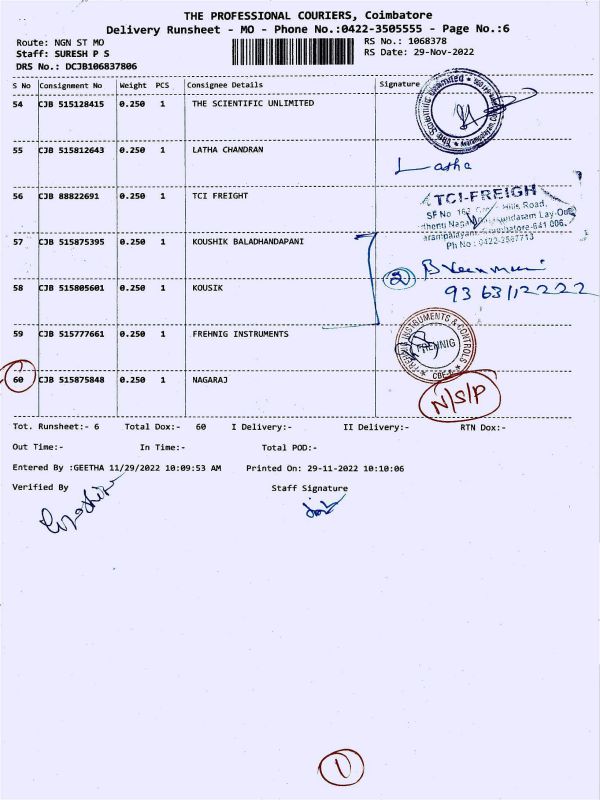 THE PROFESSIONAL COURIERS, Coimbatore
Delivery Runsheet - MO - Phone No.:0422-3505555 - Page No.:6
Route: NGN ST MO RS No.: 1068378
Staff: SURESH P S RS Date: 29-Nov-2022
DRS No.: DCJB106837806
S No Consignment No Weight PCS Consignee Details Signature
54 CJB 515128415 0.250 1 THE SCIENTIFIC UNLIMITED
55 CJB 515812643 0.250 1 LATHA CHANDRAN
Latha
56 CJB 88822691 0.250 1 TCI FREIGHT
TCI-FREIGH
Hills Road,
Lay-Out
641 006.
Ph No : 0422-2567713
57 CJB 515875395 0.250 1 KOUSHIK BALADHANDAPANI
2
58 CJB 515805601 0.250 1 KOUSIK
93 63/12222
59 CJB 515777661 0.250 1 FREHNIG INSTRUMENTS
INSTRUMENTS & CONTROLS
FREHNIG
CBE
60 CJB 515875848 0.250 1 NAGARAJ
N/S/P
Tot. Runsheet:- 6 Total Dox:- 60 I Delivery:- II Delivery:- RTN Dox:-
Out Time:- In Time:- Total POD:-
Entered By :GEETHA 11/29/2022 10:09:53 AM Printed On: 29-11-2022 10:10:06
Verified By Staff Signature
1